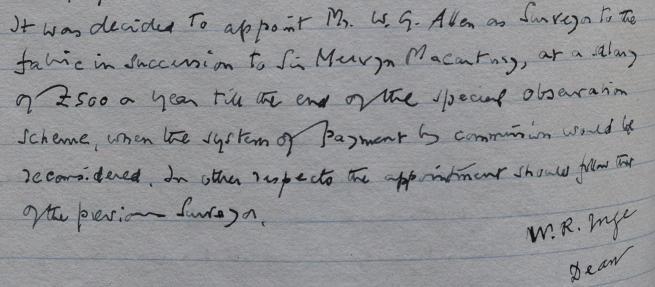 It was decided to appoint Mr. W. G. Allen as Surveyor to the
fabric in succession to Sir Mervyn Macartney, at a salary
of £500 a year till the end of the special observation
scheme, when the system of payment by commission would be
reconsidered. In other respects the appointment should follow that
of the previous Surveyor.
W. R. Inge
Dean